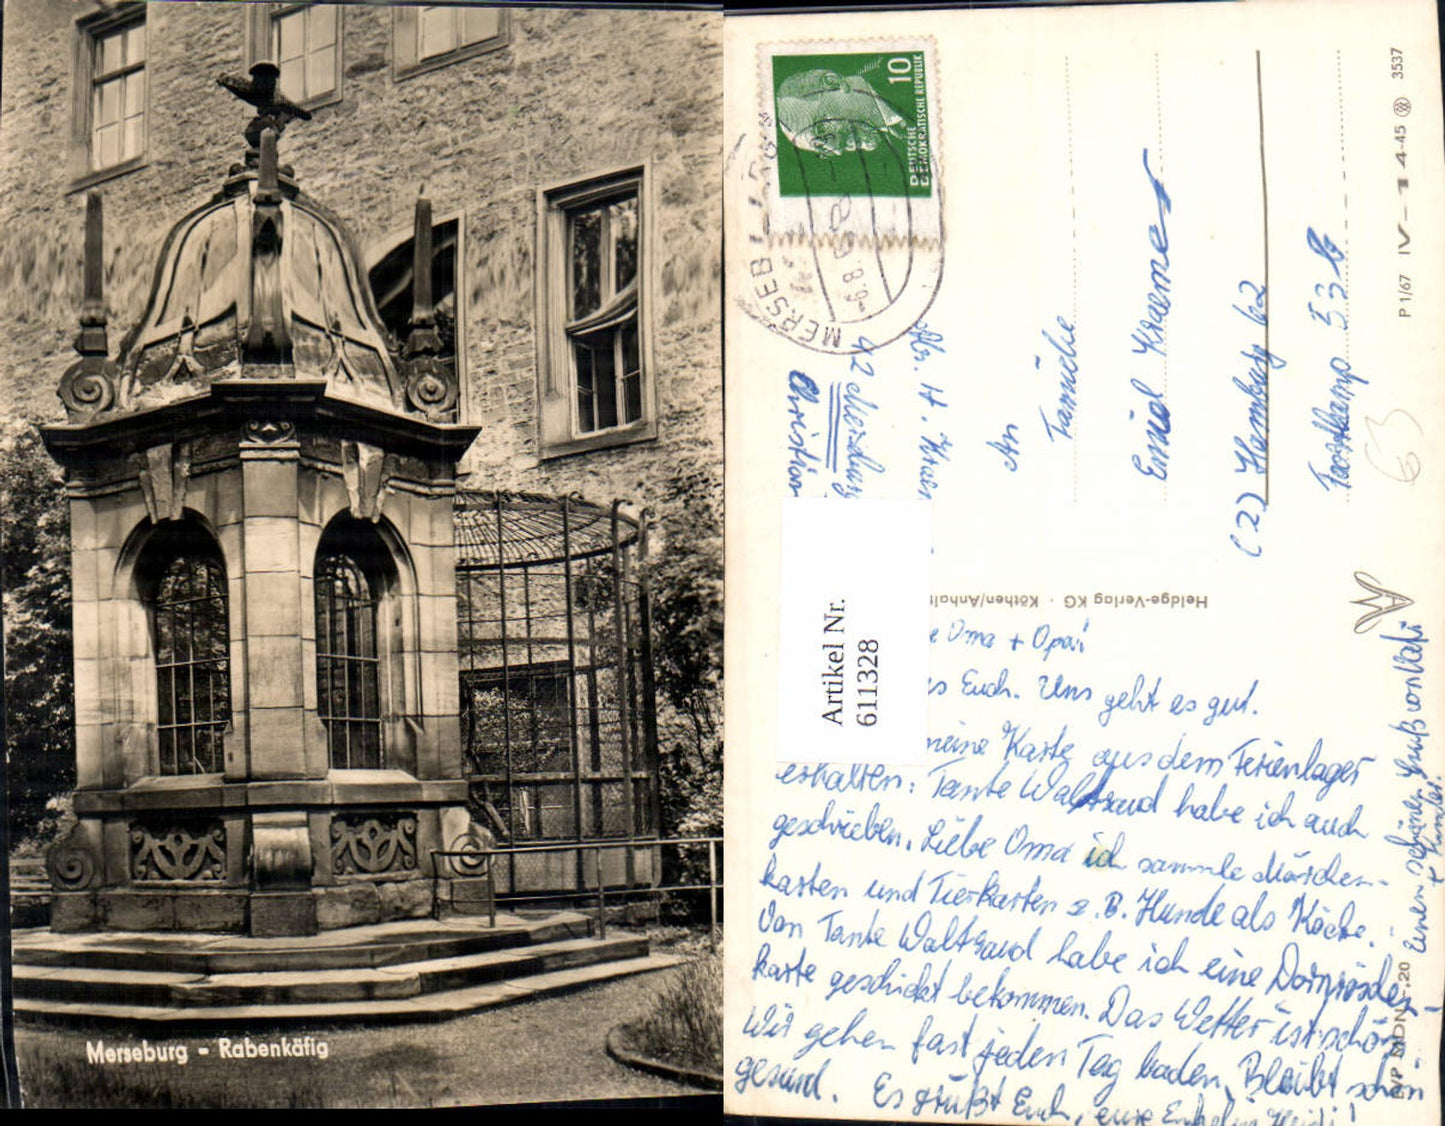 Merseburg - Rabenkäfig
10
DEUTSCHE
DEMOKRATISCHE REPUBLIK
MERSEBURG
Abs. H. Kraemer
42 Merseburg
Christian
An
Familie
Emil Kraemer
(2) Hamburg 62
Fossberg 53 b
63
P 1/67 IV-14-45 3537
Heldge-Verlag KG · Köthen/Anhalt
Artikel Nr.
611328
Oma + Opa!
es Euch. Uns geht es gut.
meine Karte aus dem Ferienlager
erhalten. Tante Waltraud habe ich auch
geschrieben. Liebe Oma ich sammle Märchen-
karten und Tierkarten z. B. Hunde als Köche.
Von Tante Waltraud habe ich eine Dornröschen-
karte geschickt bekommen. Das Wetter ist schön.
Wir gehen fast jeden Tag baden. Bleibt schön
gesund. Es grüßt Euch, eure Enkelin Heidi!
Einen schönen Gruß von Vati